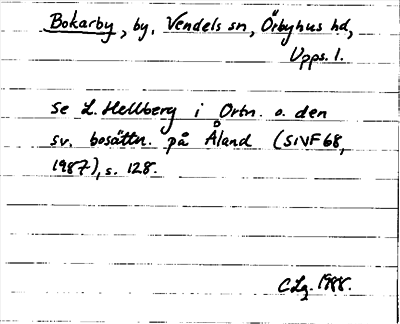 Bokarby, by, Vendels sn, Örbyhus hd,
Upps. l.
Se L. Hellberg i Ortn. o. den
sv. bosättn. på Åland (SNF 68,
1987), s. 128.
CLg. 1988.